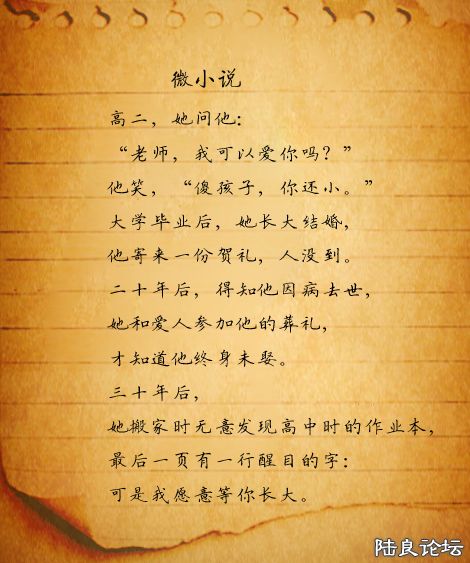 微小说
高二，她问他：
“老师，我可以爱你吗？”
他笑，“傻孩子，你还小。”
大学毕业后，她长大结婚，
他寄来一份贺礼，人没到。
二十年后，得知他因病去世，
她和爱人参加他的葬礼，
才知道他终身未娶。
三十年后，
她搬家时无意发现高中时的作业本，
最后一页有一行醒目的字：
可是我愿意等你长大。
陆良论坛